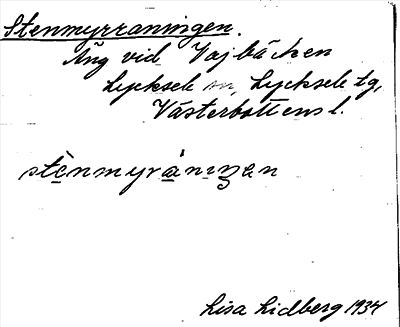 Stenmyrraningen.
Äng vid Vajbäcken
Lycksele sn, Lycksele tg,
Västerbottens l.
stènmyránıŋen
Lisa Lidberg 1934